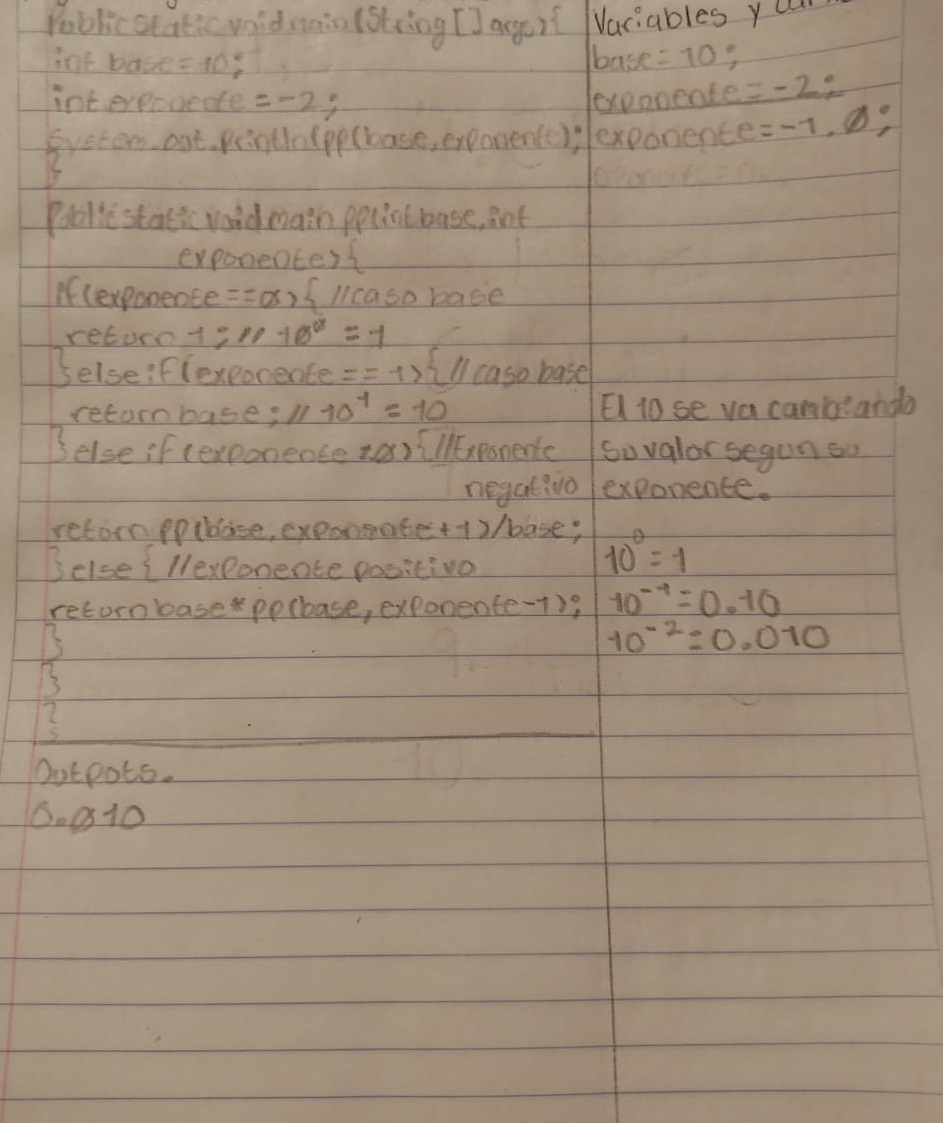 Public static void main (String [] args) {
int base = 10;
int exponente = -2;
System.out.println(pp(base, exponente);
}
Public static void main pp(int base, int
exponente) {
if (exponente == 0) { //caso base
return 1; // 10⁰ = 1
} else if (exponente == 1) { // caso base
return base; // 10¹ = 10
} else if (exponente < 0) { //Exponente
negativo
return pp(base, exponente + 1) / base;
} else { //exponente positivo
return base * pp(base, exponente - 1);
}
}
}
Outputs.
0.010
Variables y
base = 10;
exponente = -2;
exponente = -1, 0;
El 10 se va cambiando
su valor segun su
exponente.
10⁰ = 1
10⁻¹ = 0.10
10⁻² = 0.010